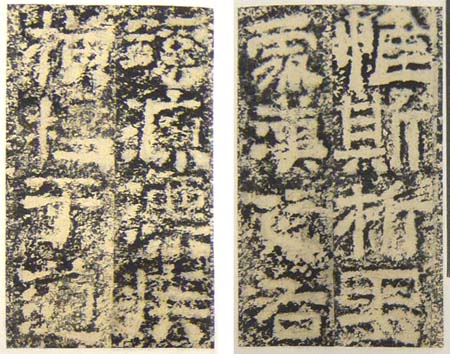 惟斯析里
處漢之右
溪源漂疾
橫柱于道